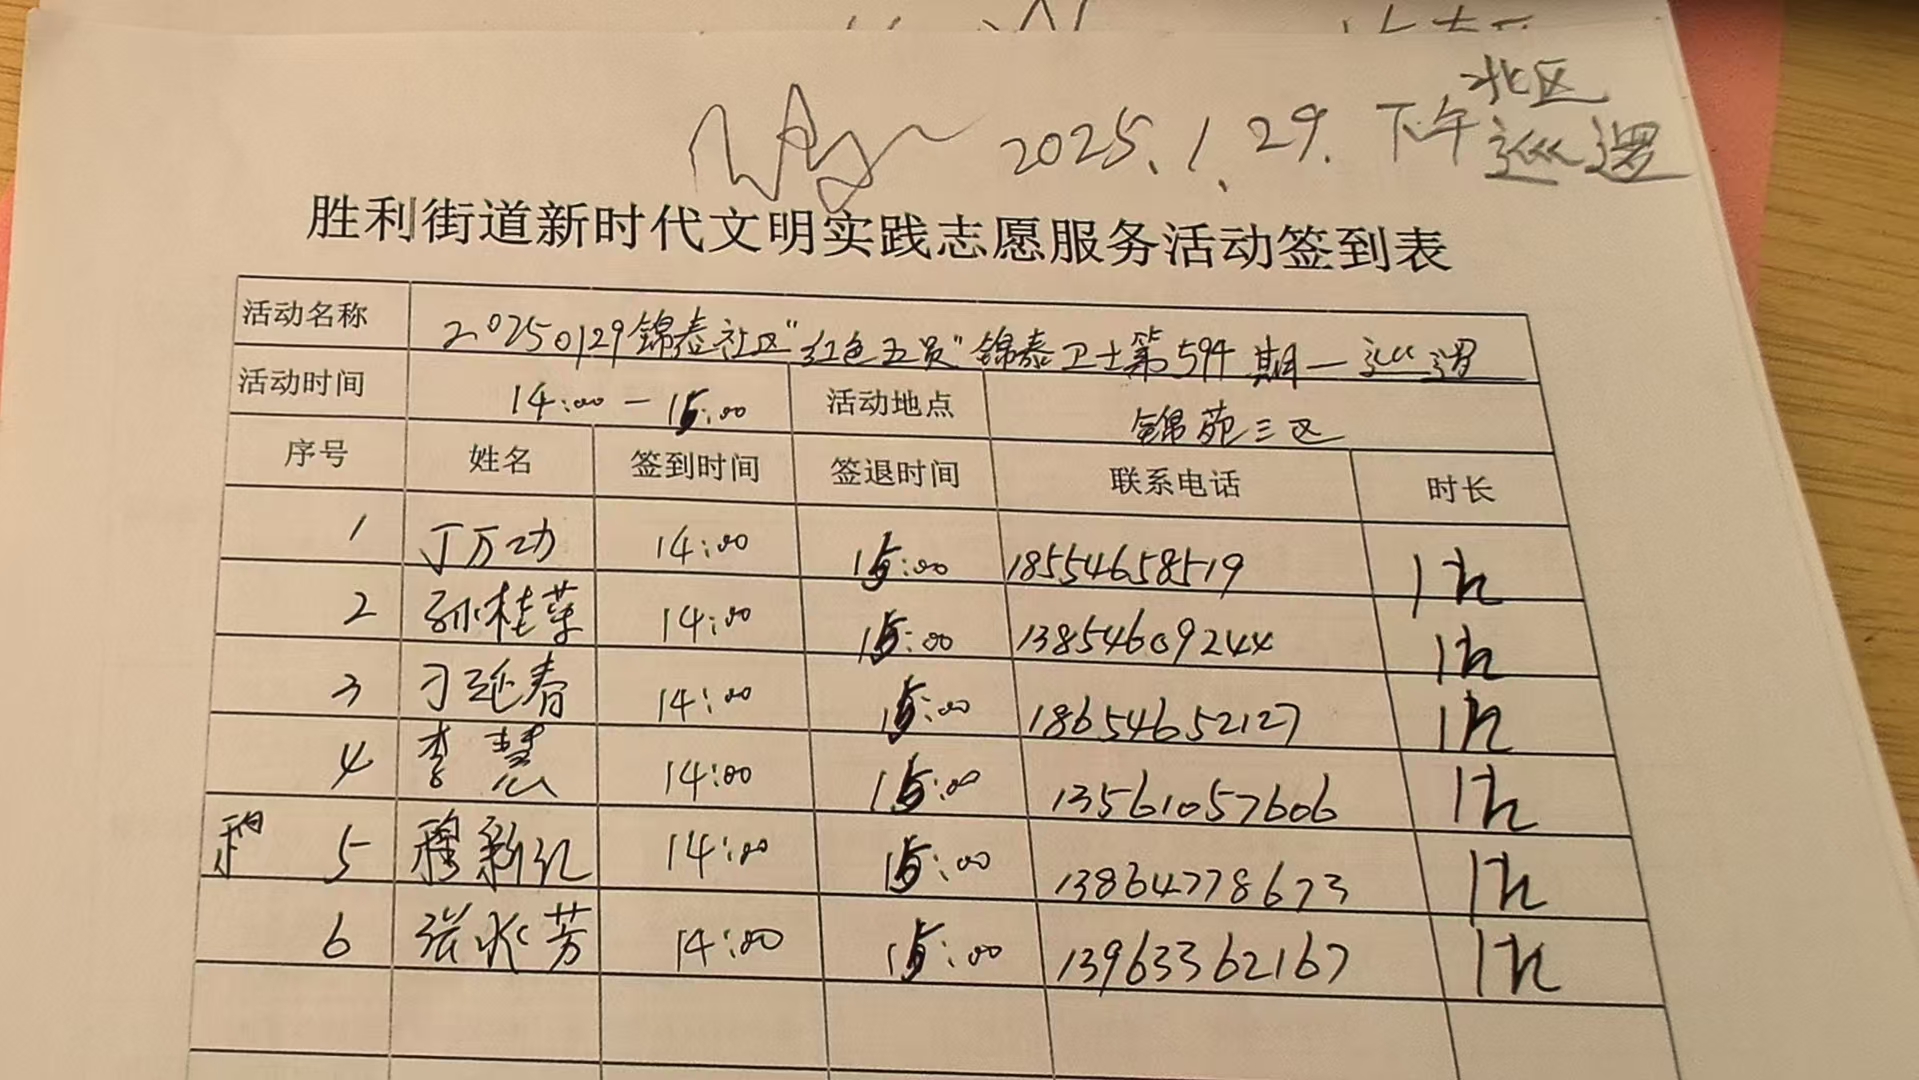 北区
2025.1.29.下午巡逻
胜利街道新时代文明实践志愿服务活动签到表
活动名称 20250129锦泰社区"红色五员"锦泰卫士第594期一巡逻
活动时间 14:00-15:00 活动地点 锦苑三区
序号 姓名 签到时间 签退时间 联系电话 时长
1 丁万功 14:00 15:00 18554658519 1h
2 孙桂苹 14:00 15:00 13854609244 1h
3 刁延春 14:00 15:00 18654652127 1h
4 李慧 14:00 15:00 13561057606 1h
5 穆新红 14:00 15:00 13864778673 1h
6 张水芳 14:00 15:00 13963362167 1h